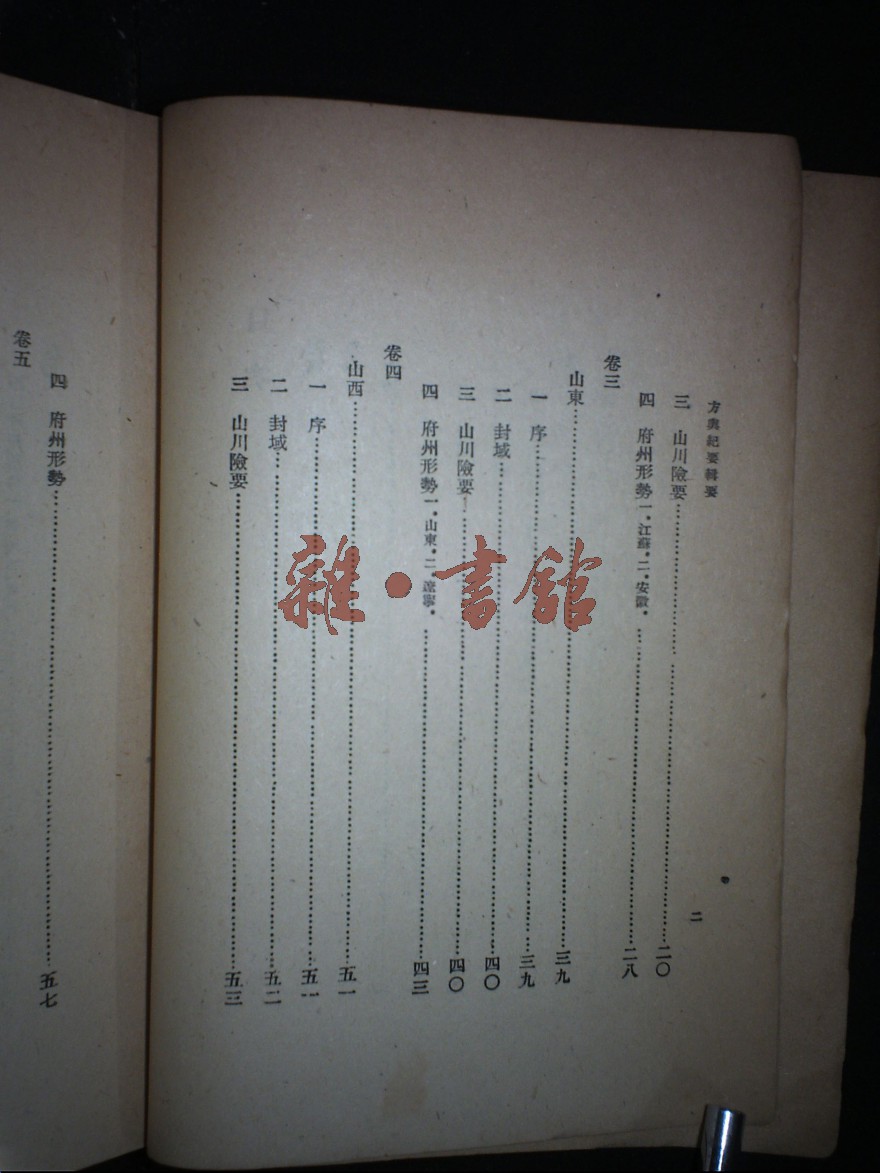 方輿紀要輯要
二
三 山川險要……二〇
四 府州形勢 一．江蘇．二．安徽．……二八
卷三
山東……三九
一 序……三九
二 封域……四〇
三 山川險要……四〇
四 府州形勢 一．山東．二．遼寧．……四三
卷四
山西……五一
一 序……五一
二 封域……五二
三 山川險要……五三
四 府州形勢……五七
卷五
雜·書館